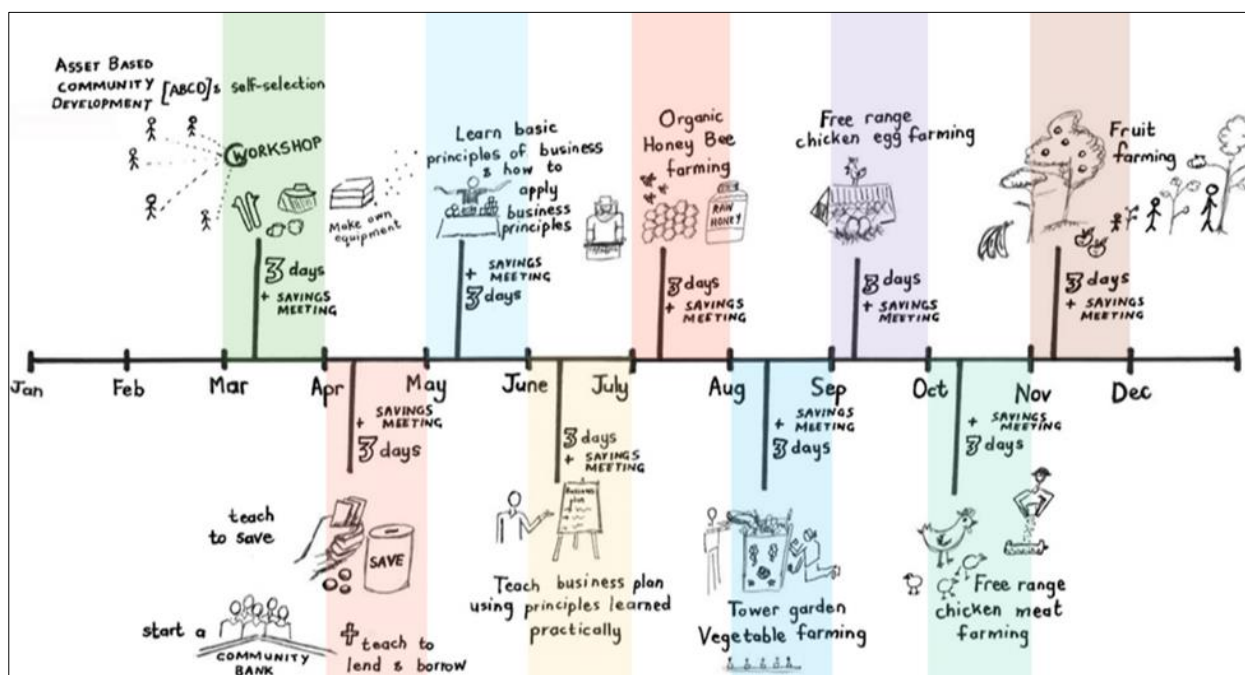 ASSET BASED
COMMUNITY
DEVELOPMENT [ABCD] & self-selection
WORKSHOP
3 days
+ SAVINGS
MEETING
Make own
equipment
Learn basic
principles of business
& how to
apply
business
principles
+ SAVINGS
MEETING
3 days
Organic
Honey Bee
farming
RAW
HONEY
3 days
+ SAVINGS
MEETING
Free range
chicken egg farming
3 days
+ SAVINGS
MEETING
Fruit
farming
3 days
+ SAVINGS
MEETING
Jan Feb Mar Apr May June July Aug Sep Oct Nov Dec
+ SAVINGS
MEETING
3 days
teach
to save
SAVE
start a
COMMUNITY
BANK
+ teach to
lend & borrow
3 days
+ SAVINGS
MEETING
Business
Teach business plan
using principles learned
practically
+ SAVINGS
MEETING
3 days
Tower garden
Vegetable farming
+ SAVINGS
MEETING
3 days
Free range
chicken meat
farming